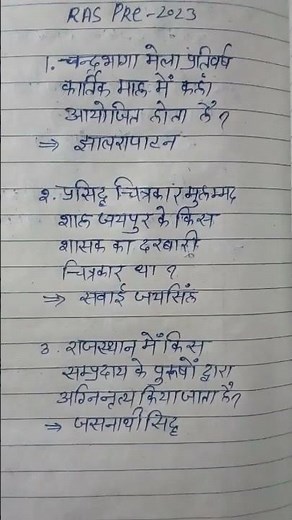 RAS PRE-2023
1. चन्द्रभागा मेला प्रतिवर्ष
कार्तिक माह में कहाँ
आयोजित होता है?
⇒ झालरापाटन
२. प्रसिद्ध चित्रकार मुहम्मद
शाह जयपुर के किस
शासक का दरबारी
चित्रकार था?
⇒ सवाई जयसिंह
3. राजस्थान में किस
सम्प्रदाय के पुरुषों द्वारा
अग्निनृत्य किया जाता है?
⇒ जसनाथी सिद्ध